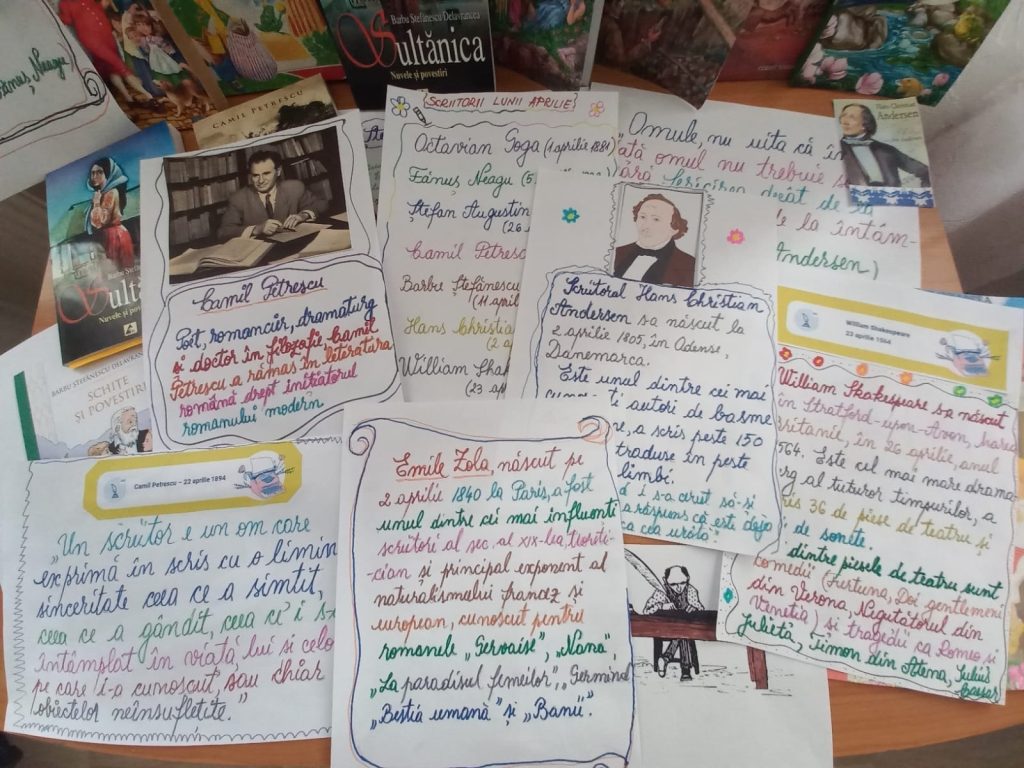 Fănuș Neagu
Barbu Ștefănescu Delavrancea
Sultănica
Nuvele și povestiri
CAMIL PETRESCU
Hans Christian
Andersen
Barbu
Sultă
Nuvele și pov
BARBU ȘTEFĂNESCU DELAVRANCEA
SCHIȚE
ȘI POVESTIRI
Camil Petrescu
Poet, romancier, dramaturg
și doctor în filozofie, Camil
Petrescu a rămas în literatura
română drept inițiatorul
romanului modern
SCRIITORII LUNII APRILIE
Octavian Goga (1 aprilie 1881
Fănuș Neagu (5
Ștefan Augustin
(26
Camil Petresc
Barbu Ștefănescu
(11 april
Hans Christia
(2 a
William Sha
(23 ap
"Omule, nu uita că în
ață omul nu trebuie s
fericirea decât de la
le la întâm-
Andersen)
Scriitorul Hans Christian
Andersen s-a născut la
2 aprilie 1805, în Odense,
Danemarca.
Este unul dintre cei mai
ti autori de basme
e, a scris peste 150
traduse în peste
limbi.
d i s-a cerut să-și
a răspuns că este deja
ca cea urâtă".
William Shakespeare
23 aprilie 1564
William Shakespeare s-a născut
în Stratford-upon-Avon, Marea
Britanie, în 26 aprilie, anul
1564. Este cel mai mare drama-
rg al tuturor timpurilor, a
ris 36 de piese de teatru și
de sonete.
dintre piesele de teatru sunt
comedii (Furtuna, Doi gentlemeni
din Verona, Neguțătorul din
Veneția) și tragedii ca Romeo și
Julieta, Timon din Atena, Julius
Caesar
Camil Petrescu – 22 aprilie 1894
„Un scriitor e un om care
exprimă în scris cu o limin
sinceritate ceea ce a simțit,
ceea ce a gândit, ceea ce i s-a
întâmplat în viață, lui și celo
pe care i-a cunoscut, sau chiar
obiectelor neînsuflețite."
Emile Zola, născut pe
2 aprilie 1840 la Paris, a fost
unul dintre cei mai influenți
scriitori al sec. al XIX-lea, teoreti-
cian și principal exponent al
naturalismului francez și
european, cunoscut pentru
romanele „Gervaise", „Nana"
„La paradisul femeilor", „Germinal
„Bestia umană" și „Banii".